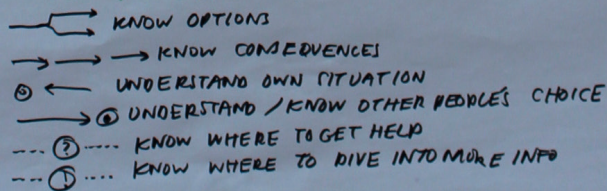 KNOW OPTIONS
KNOW CONSEQUENCES
UNDERSTAND OWN SITUATION
UNDERSTAND / KNOW OTHER PEOPLE'S CHOICE
? KNOW WHERE TO GET HELP
KNOW WHERE TO DIVE INTO MORE INFO